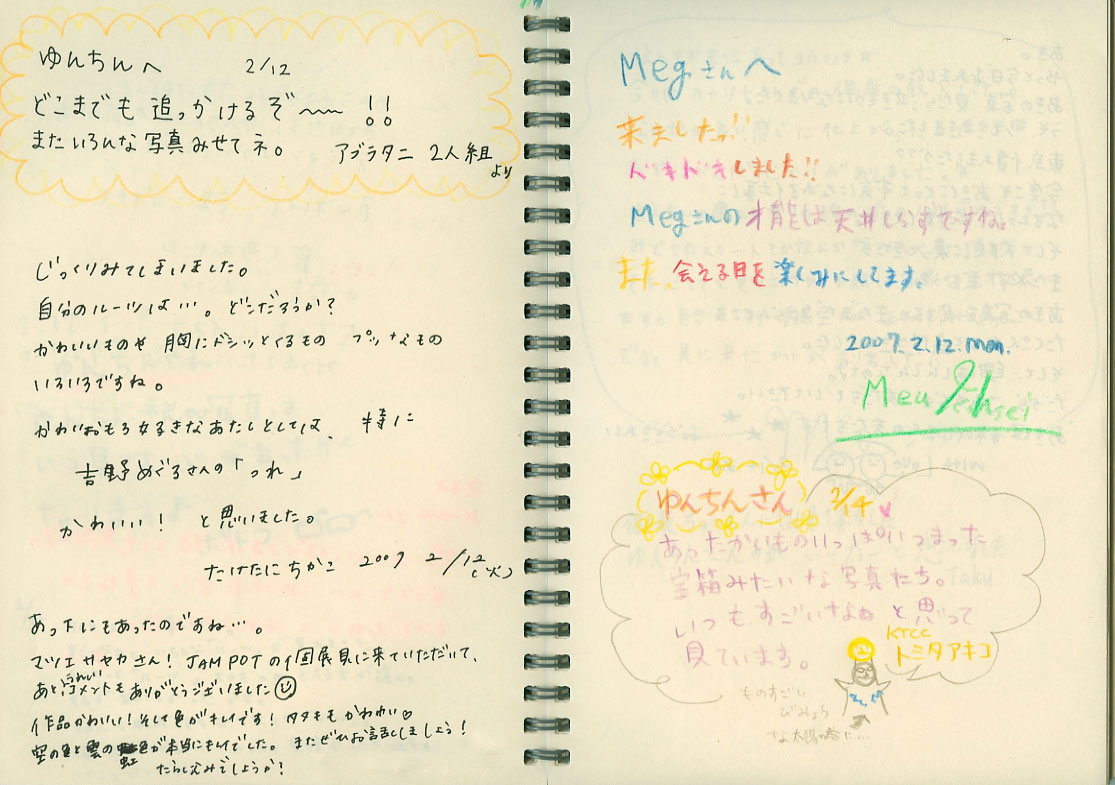 ゆんちんへ 2/12
どこまでも 追っかけるぞ〜〜 !!
またいろんな写真みせてネ。 アブラタニ 2人組
より
じっくりみてしまいました。
自分のルーツは…。どこだろうか?
かわいいものや 胸にドシッとくるもの プッなもの
いろいろですね。
かわいおもろ好きなあたしとしては、 特に
吉野めぐるさんの「つれ」
かわいい! と思いました。
たけたにちかこ 2007 2/12
(火)
あっ下にもあったのですね…。
マツエ サヤカさん! JAM POTの個展見に来ていただいて、
あと、うれしいコメントもありがとうございました
作品かわいい!そして色がキレイです! タタキもかわいい♡
空の色と雲の色が本当にキレイでした。 またぜひお話ししましょう!
虹
たらし込みでしょうか?
Megさんへ
来ましたっ!!
ドキドキしました!!
Megさんの才能は天井しらずですね。
また、会える日を楽しみにしてます。
2007.2.12.mon.
Meu
ゆんちんさん 2/14
あったかいものいっぱいつまった
宝箱みたいな写真たち。
いつもすごいなぁ と思って
見ています。
KTCC
トミタアキコ
ものすごい
びみょう
な太陽の塔に…